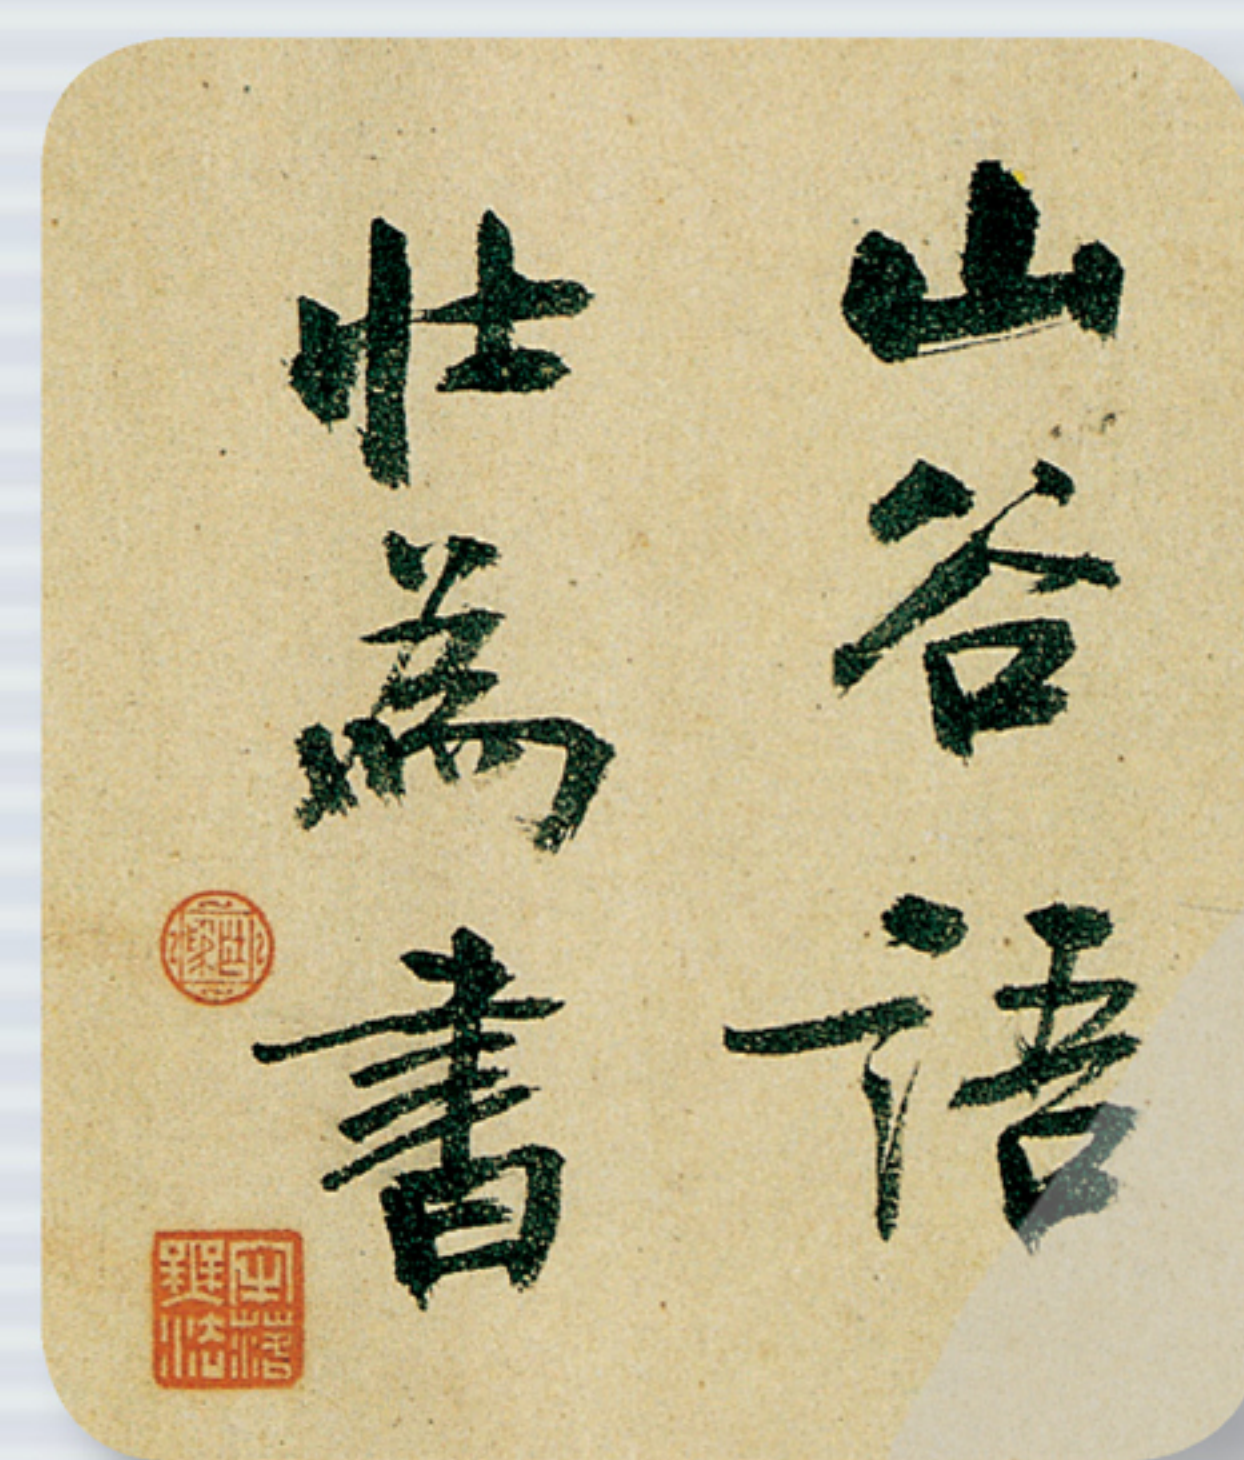 山谷語
壮為書